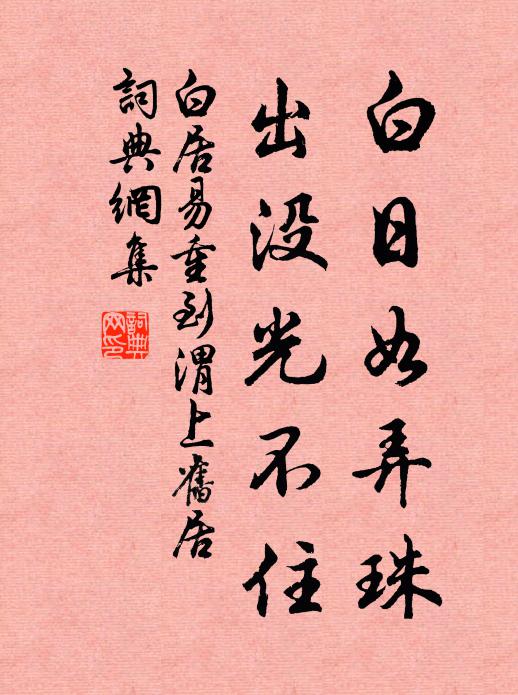 白日如弄珠
出没光不住
白居易重到渭上舊居
詞典網集
詞典
网印